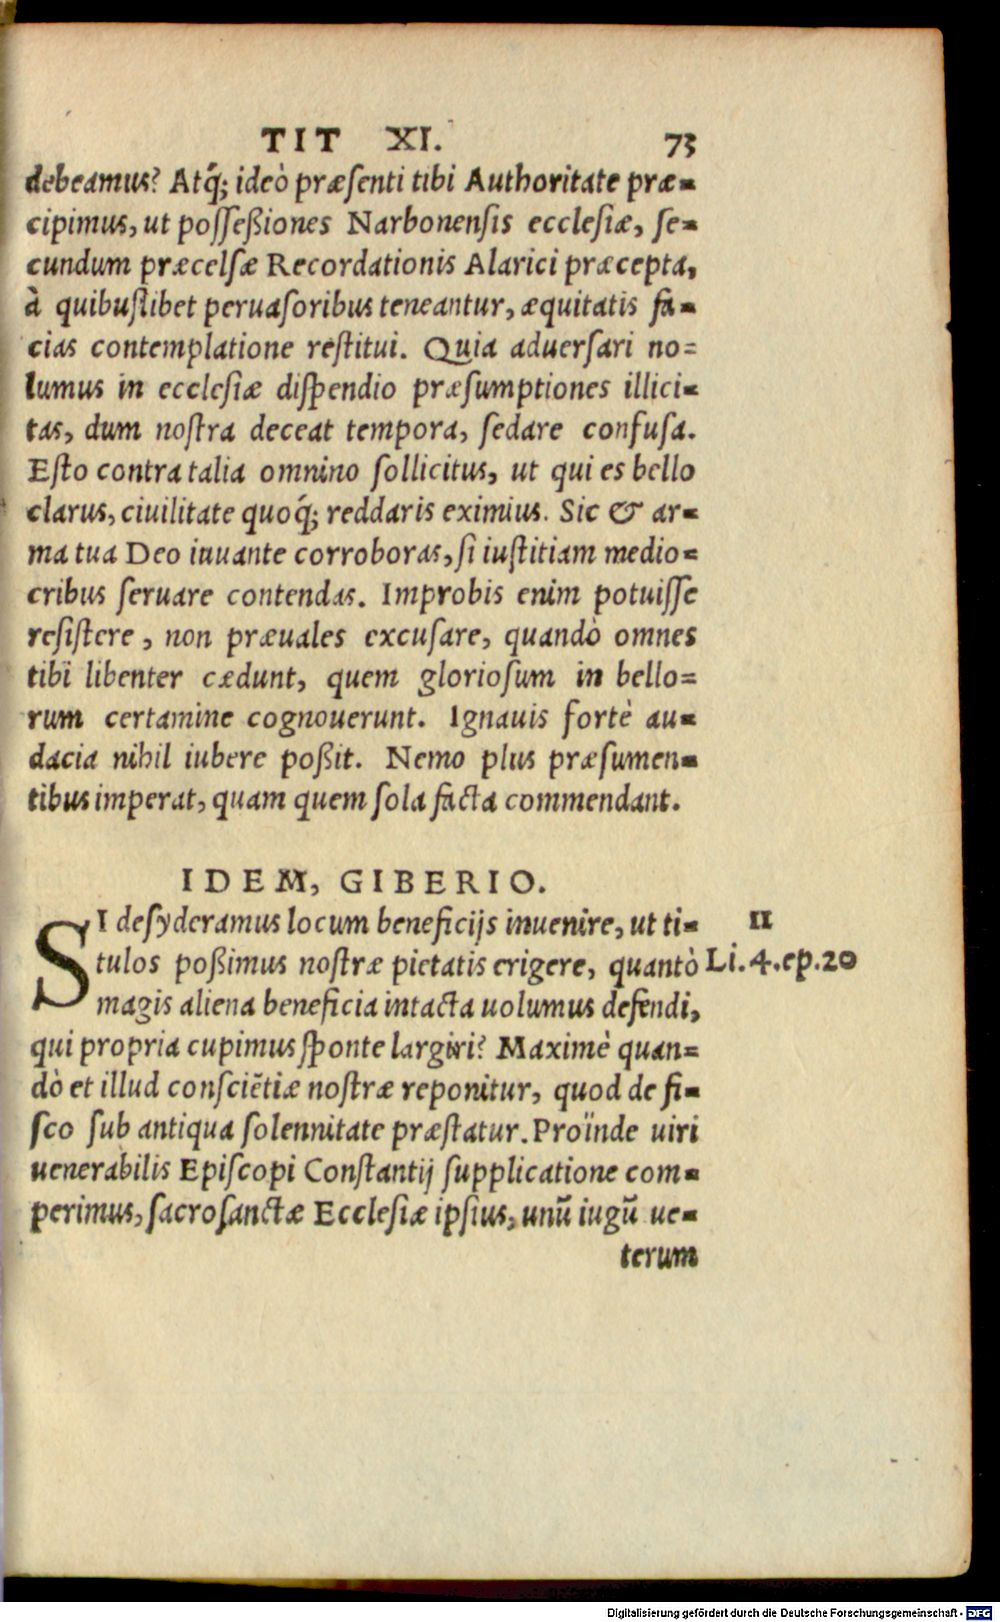 TIT XI. 73
debeamus? Atq́; ideò præsenti tibi Authoritate præ-
cipimus, ut poſſeßiones Narbonenſis eccleſiæ, ſe-
cundum præcelſæ Recordationis Alarici præcepta,
à quibuſlibet peruaſoribus teneantur, æquitatis fa-
cias contemplatione reſtitui. Quia aduerſari no=
lumus in eccleſiæ diſpendio præſumptiones illici-
tas, dum noſtra deceat tempora, ſedare confuſa.
Eſto contra talia omnino ſollicitus, ut qui es bello
clarus, ciuilitate quoq́; reddaris eximius. Sic & ar-
ma tua Deo iuuante corroboras, ſi iuſtitiam medio=
cribus ſeruare contendas. Improbis enim potuiſſe
reſiſtere, non præuales excuſare, quandò omnes
tibi libenter cædunt, quem glorioſum in bello=
rum certamine cognouerunt. Ignauis fortè au-
dacia nihil iubere poßit. Nemo plus præſumen-
tibus imperat, quam quem ſola facta commendant.
IDEM, GIBERIO.
SI deſyderamus locum beneficijs inuenire, ut ti- II
tulos poßimus noſtræ pietatis erigere, quantò Li.4.ep.20
magis aliena beneficia intacta uolumus defendi,
qui propria cupimus ſponte largiri? Maximè quan=
dò et illud conſciẽtiæ noſtræ reponitur, quod de fi-
ſco ſub antiqua ſolennitate præſtatur. Proïnde uiri
uenerabilis Epiſcopi Conſtantij ſupplicatione com-
perimus, ſacroſanctæ Eccleſiæ ipſius, unũ iugũ ue-
terum
Digitalisierung gefördert durch die Deutsche Forschungsgemeinschaft - DFG